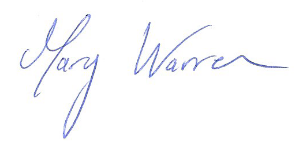 Mary Warren